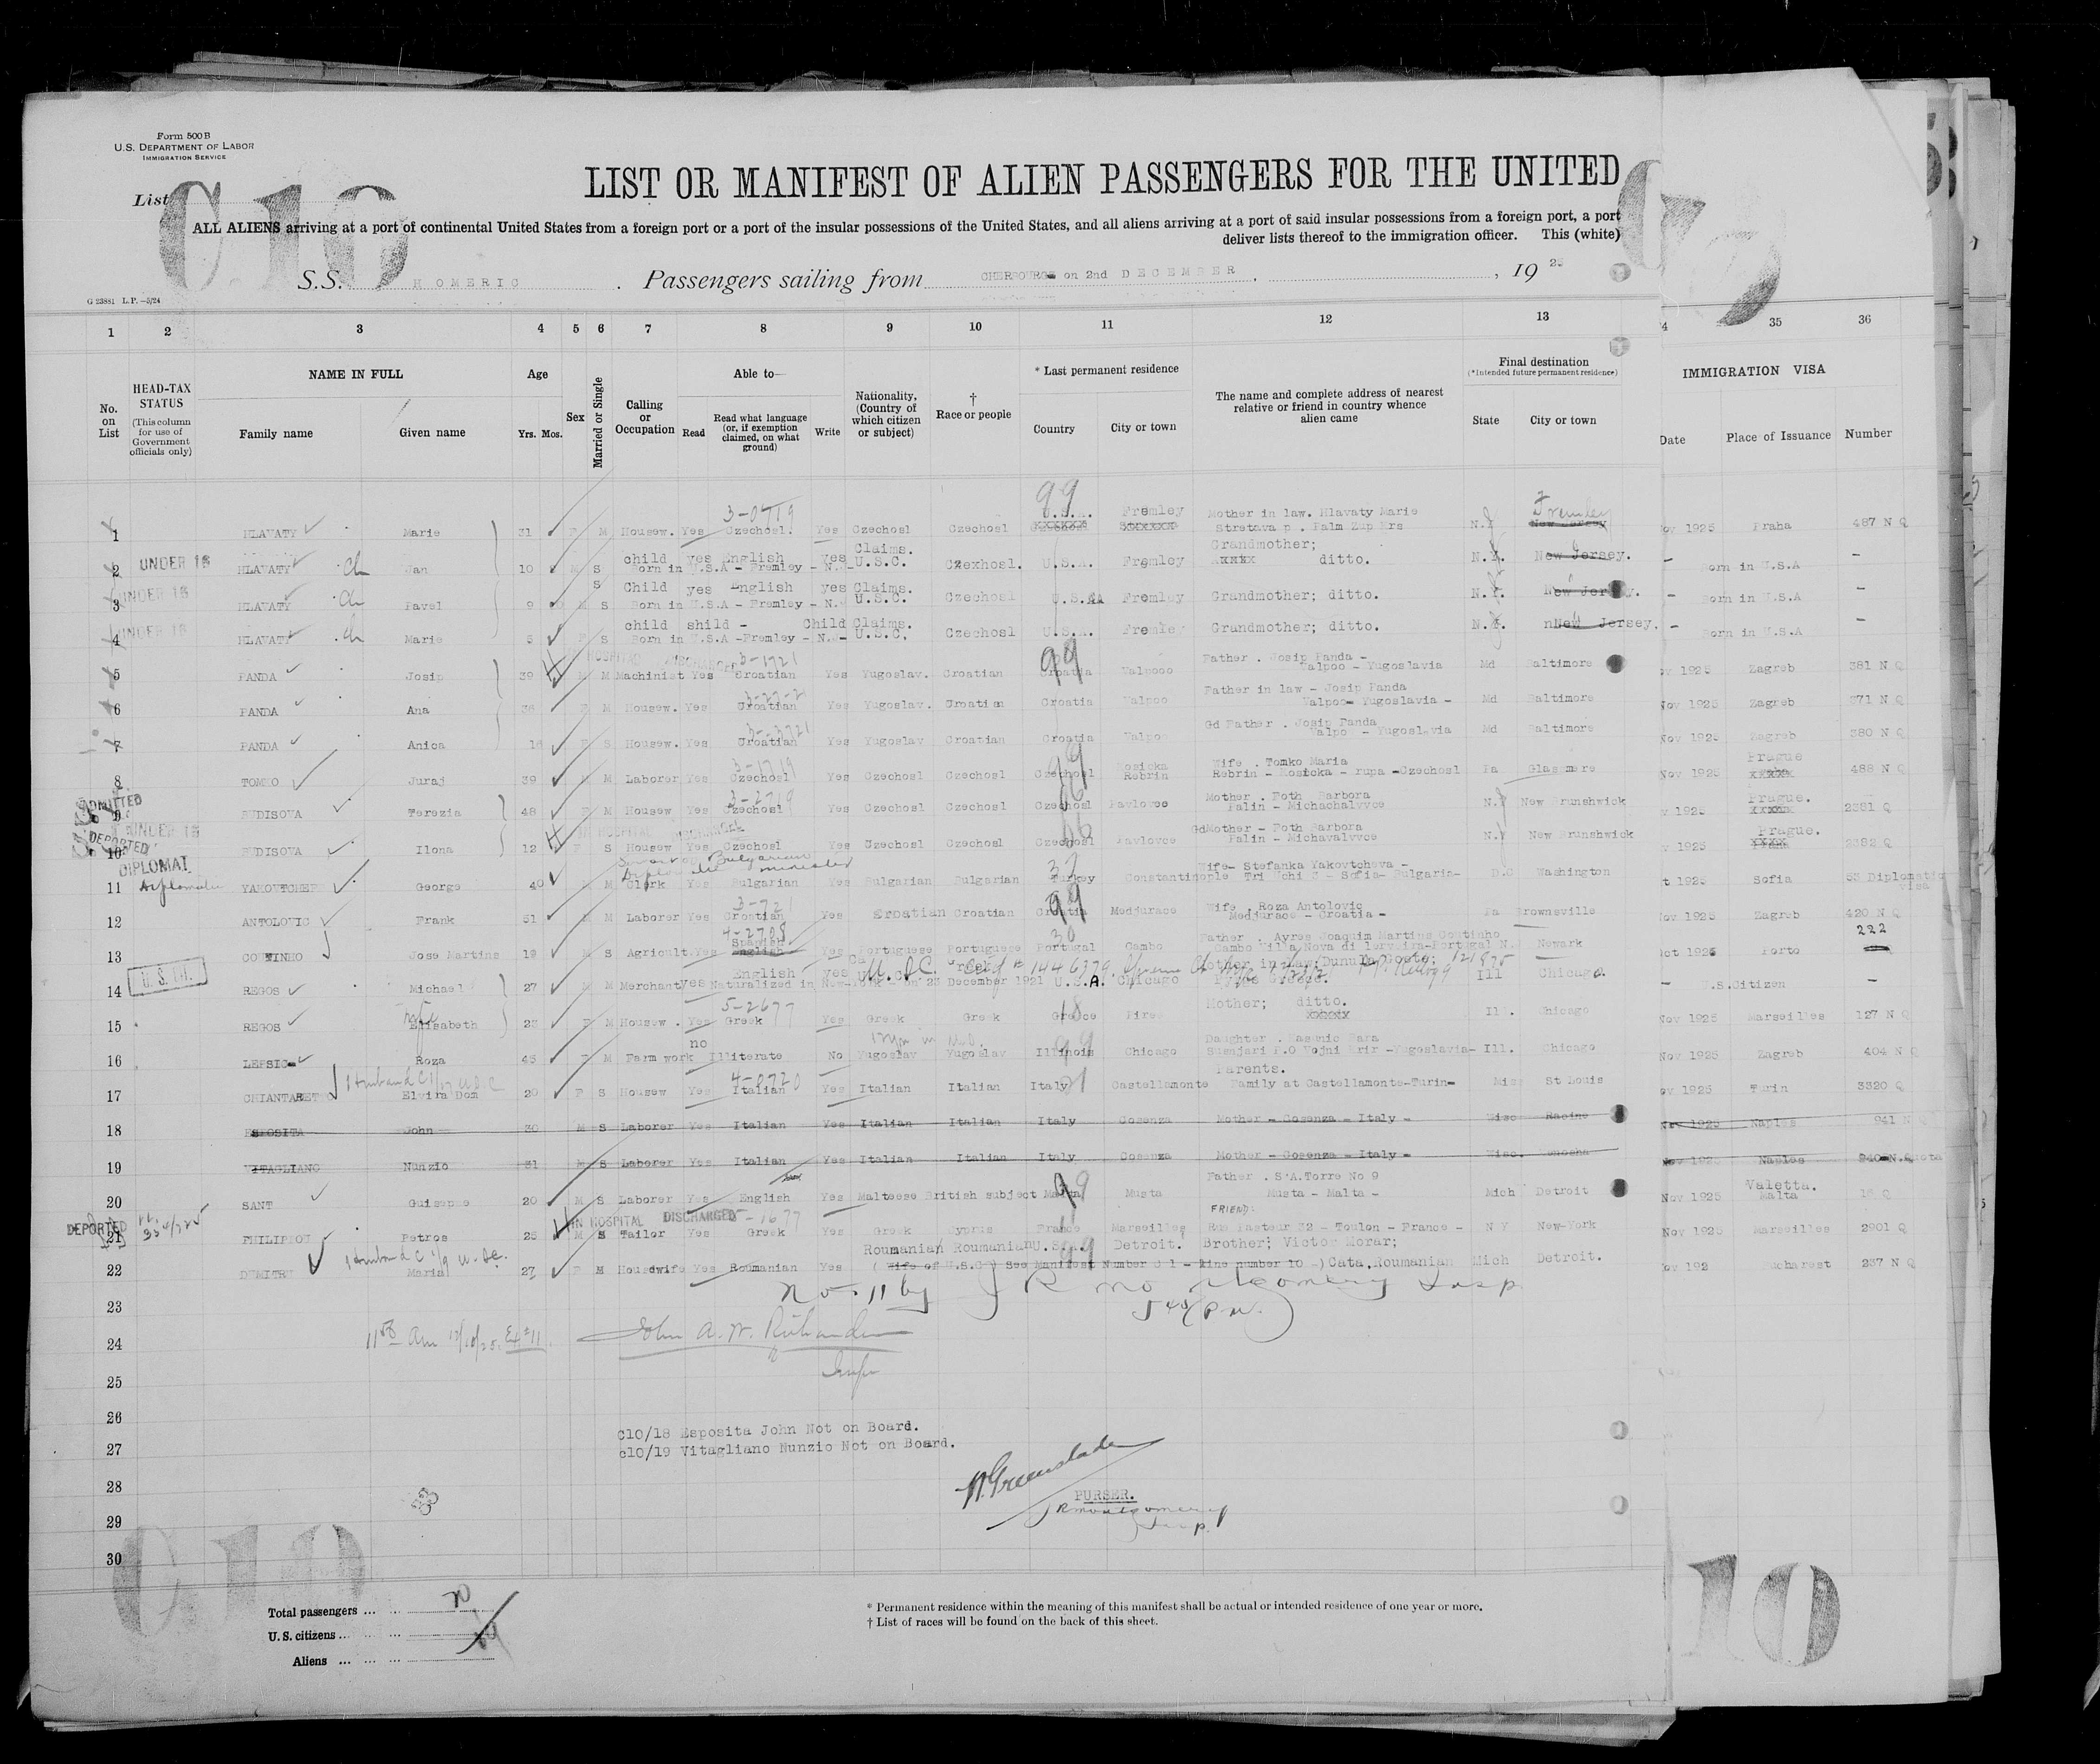 Form 500 B
U.S. DEPARTMENT OF LABOR
IMMIGRATION SERVICE
List
C10
LIST OR MANIFEST OF ALIEN PASSENGERS FOR THE UNITED
ALL ALIENS arriving at a port of continental United States from a foreign port or a port of the insular possessions of the United States, and all aliens arriving at a port of said insular possessions from a foreign port, a port
deliver lists thereof to the immigration officer. This (white)
S.S. HOMERIC . Passengers sailing from CHERBOURG on 2nd DECEMBER , 19 25
G 23881 L.P. —5/24
1 2 3 4 5 6 7 8 9 10 11 12 13 35 36
No. on List
HEAD-TAX STATUS (This column for use of Government officials only)
NAME IN FULL
Family name Given name
Age
Yrs. Mos.
Sex
Married or Single
Calling or Occupation
Able to—
Read Read what language (or, if exemption claimed, on what ground) Write
Nationality, (Country of which citizen or subject)
† Race or people
* Last permanent residence
Country City or town
The name and complete address of nearest relative or friend in country whence alien came
Final destination
(*Intended future permanent residence)
State City or town
IMMIGRATION VISA
Date Place of Issuance Number
1 HLAVATY Marie 31 F M Housew. Yes Czechosl. Yes Czechosl Czechosl U.S.A. Fremley Mother in law. Hlavaty Marie Stretava p. Palm Zup Hrs N.J Fremley New Jersey 1925 Praha 487 N Q
2 UNDER 16 HLAVATY ch Jan 10 M S child yes English yes Claims. U.S.C. Born in U.S.A - Fremley - N.J- Czexhosl. U.S.A. Fremley Grandmother; ditto. New Jersey. - Born in U.S.A -
3 UNDER 16 HLAVATY ch Pavel 9 M S Child yes English yes Claims. U.S.C. Born in U.S.A - Fremley - N.J Czechosl U.S.A Fremley Grandmother; ditto. New Jersey. - Born in U.S.A -
4 UNDER 16 HLAVATY ch Marie 5 F S child shild - Child Claims. U.S.C. Born in U.S.A -Fremley - N.J- Czechosl U.S.A. Fremley Grandmother; ditto. nNew Jersey. - Born in U.S.A -
5 PANDA Josip 39 M M Machinist Yes Croatian Yes Yugoslav. Croatian Croatia Valpoo Father . Josip Panda - Valpoo - Yugoslavia Md Baltimore 1925 Zagreb 381 N Q
6 PANDA Ana 36 F M Housew. Yes Croatian Yes Yugoslav. Croatian Croatia Valpoo Father in law - Josip Panda Valpoo- Yugoslavia - Md Baltimore Nov 1925 Zagreb 371 N Q
7 PANDA Anica 16 F S Housew. Yes Croatian Yes Yugoslav Croatian Croatia Valpoo Gd Father . Josip Panda Valpo - Yugoslavia Md Baltimore Nov 1925 Zagreb 380 N Q
8 TOMKO Juraj 39 M M Laborer Yes Czechosl Yes Czechosl Czechosl Czechosl Rosicka Rebrin Wife . Tomko Maria Rebrin - Rosicka - rupa -Czechosl Pa Glassmere Nov 1925 Prague 488 N Q
ADMITTED
9 BUDISOVA Terezia 48 F M Housew Yes Czechosl Yes Czechosl Czechosl Czechosl Pavlovce Mother . Foth Barbora Palin - Michachalvvce N.J New Brunshwick 1925 Prague. 2381 Q
UNDER 16
DEPORTED
10 BUDISOVA Ilona 12 F S Housew Yes Czechosl Yes Czechosl Czechosl Czechosl Pavlovce GdMother - Foth Barbora Palin - Michavalvvce N.J New Brunshwick 1925 Prague. 2382 Q
DIPLOMAT
11 Diplomatic YAKOVTCHEF George 40 M M Clerk Yes Bulgarian Yes Bulgarian Bulgarian Turkey Constantinople Wife- Stefanka Yakovtcheva - Tri Uchi 3 - Sofia- Bulgaria- D.C Washington 1925 Sofia 53 Diplomatic visa
12 ANTOLOVIC Frank 51 M M Laborer Yes Croatian Yes Croatian Croatian Croatia Medjurace Wife . Roza Antolovic Medjurace - Croatia - Pa Brownsville Nov 1925 Zagreb 420 N Q
13 COUTINHO Jose Martins 19 M S Agricult. Yes Spanish English Yes Portuguese Portuguese Portugal Gambo Father . Ayres Joaquim Martins Coutinho Newark Oct 1925 Porto 222
14 REGOS Michael 27 M M Merchant yes English yes Naturalized in New-York - on 23 December 1921 U.S.A. Chicago Ill Chicago. - U.S.Citizen -
15 REGOS wife Elisabeth 23 F M Housew . Yes Greek Yes Greek Greek Greece Piree Mother; ditto. Ill. Chicago Nov 1925 Marseilles 127 N Q
16 LEPSIC Roza 45 F M Farm work no Illiterate No Yugoslav Yugoslav Illinois Chicago Daughter . Susnjari P.O Vojni Krir -Yugoslavia- Ill. Chicago Nov 1925 Zagreb 404 N Q
17 CHIANTARETTO Elvira Dom 20 F S Housew Yes Italian Yes Italian Italian Italy Castellamonte Parents. Family at Castellamonte-Turin- Mis St Louis 1925 Turin 3320 Q
18 ESPOSITA John 30 M S Laborer Yes Italian Yes Italian Italian Italy Cosenza Mother - Cosenza - Italy - Wisc Racine Nov 1925 Naples 941 N Q
19 VITAGLIANO Nunzio 31 M S Laborer Yes Italian Yes Italian Italian Italy Cosenza Mother - Cosenza - Italy - Wisc. Kenosha Nov 192 Naples 940 N.Quota
20 SANT Guiseppe 20 M S Laborer Yes English Yes Malteese British subject Malta Musta Father . S'A.Torre No 9 Musta - Malta - Mich Detroit Nov 1925 Valetta. Malta Q
DEPORTED
IN HOSPITAL DISCHARGED
21 PHILIPPOU Petros 25 M S Tailor Yes Greek Yes Greek Cyprus France Marseilles FRIEND: Rue Pasteur 32 - Toulon - France - N Y New-York Nov 1925 Marseilles 2901 Q
22 DUMITRU Maria 27 F M Housdwife Yes Roumanian Yes Roumanian Roumanian U.S.A. Detroit. Brother; Victor Morar; Cata,Roumanian Mich Detroit. 192 Bucharest 237 N Q
(Wife of U.S.C- See Manifest Number 31 - line number 10 -)
23
No. 11 by J R Montgomery Insp
5 40 P.M.
24
Insp
25
26
27
c10/18 Esposita John Not on Board.
c10/19 Vitagliano Nunzio Not on Board.
28
PURSER.
J R Montgomery
Insp.
29
30
C10
10
Total passengers ... ... 20
U.S. citizens ... ... ...
Aliens ... ... ...
* Permanent residence within the meaning of this manifest shall be actual or intended residence of one year or more.
† List of races will be found on the back of this sheet.